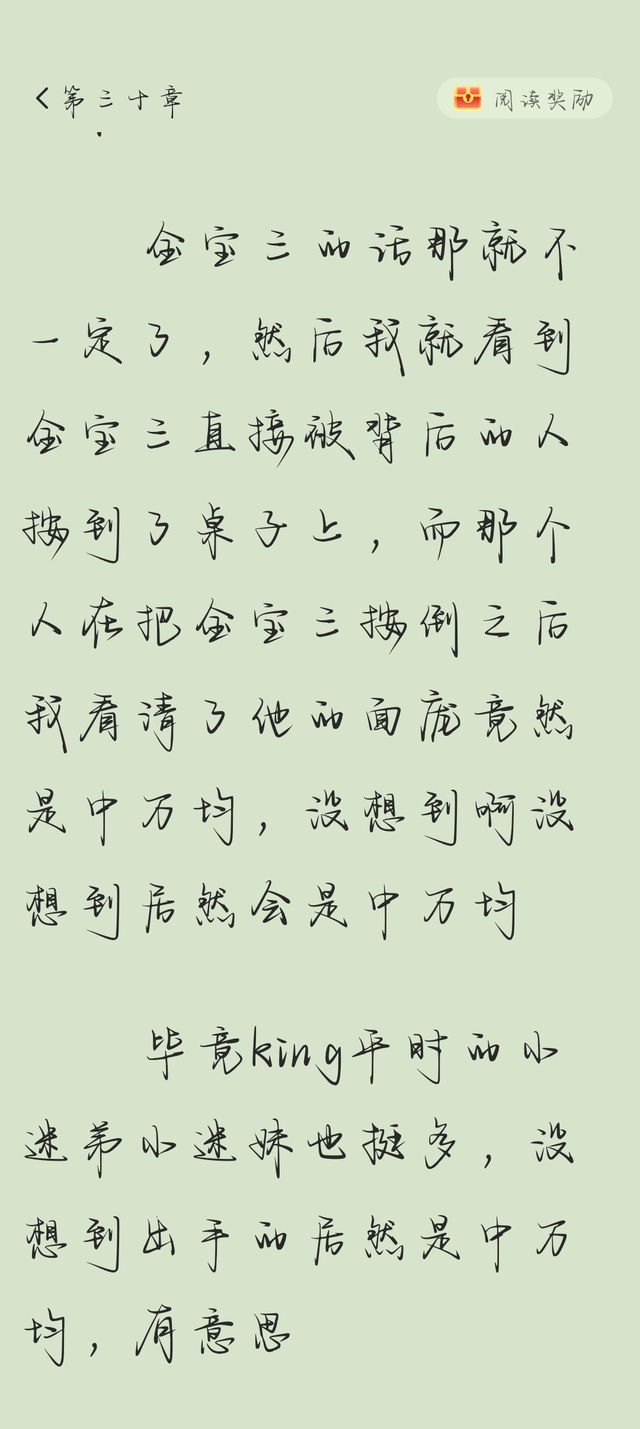 第三十章
阅读奖励
金宝三的话那就不
一定了，然后我就看到
金宝三直接被背后的人
按到了桌子上，而那个
人在把金宝三按倒之后
我看清了他的面庞竟然
是申万均，没想到啊没
想到居然会是申万均
毕竟king平时的小
迷弟小迷妹也挺多，没
想到出手的居然是申万
均，有意思